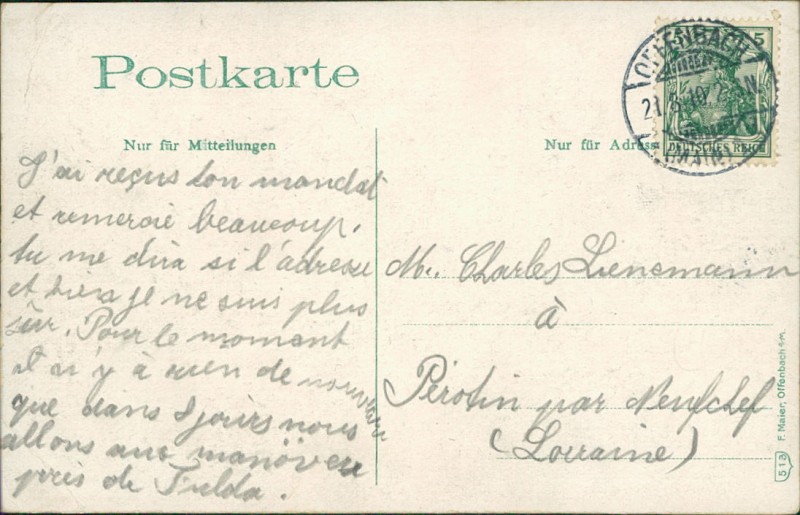 Postkarte
Nur für Mitteilungen
Nur für Adresse
OFFENBACH
(MAIN)
21.8.10.
5
DEUTSCHES REICH
J'ai reçus ton mandat
et remercie beaucoup.
tu me dira si l'adresse
et bien je ne suis plus
sûr. Pour le moment
il ni y à rien de nouveau
que dans 8 jours nous
allons aux manöver
près de Fulda.
M. Charles Lienemann
à
Pérotin par Neufchef
(Lorraine)
F. Maier, Offenbach a/M.
51a